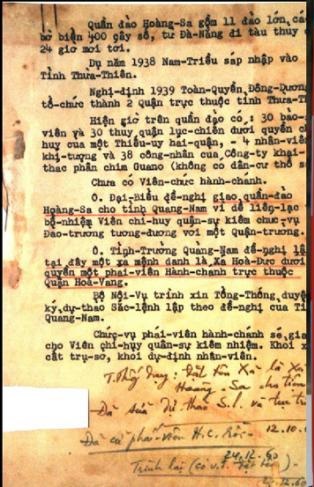 Quần đảo Hoàng-Sa gồm 11 đảo lớn, cá
bờ biển 400 cây số, từ Đà-Nẵng đi tàu thủy
24 giờ mới tới.
Dụ năm 1938 Nam-Triều sáp nhập vào
Tỉnh Thừa-Thiên.
Nghị-định 1939 Toàn-Quyền Đông-Dương
tổ-chức thành 2 Quận trực thuộc tỉnh Thừa-Th
Hiện giờ trên quần đảo có : 30 bảo-
viên và 30 thủy quân lục-chiến dưới quyền ch
huy của một Thiếu-uy hải-quân, - 4 nhân-viên
khí-tượng và 38 công-nhân của Công-ty khai-
thác phân chim Guano (không có dân-cư thổ s
Chưa có Viên-chức hành-chánh.
Ô. Đại-Biểu đề-nghị giao quần-đảo
Hoàng-Sa cho tỉnh Quảng-Nam vì dễ liên-lạc
bổ-nhiệm Viên chỉ-huy quân-sự kiêm chức-vụ
Đảo-trưởng tương-đương với một Quận-trưởng.
Ô. Tỉnh-Trưởng Quảng-Nam đề-nghị lậ
tại đây một xã mệnh danh là Xã Hoà-Đức dưới
quyền một phái-viên Hành-chánh trực thuộc
Quận Hoà-Vang.
Bộ Nội-Vụ trình xin Tổng-Thống duyệ
ký dự-thảo Sắc-lệnh lập theo đề-nghị của Tỉ
Quảng-Nam.
Chức-vụ phái-viên hành-chánh sẽ gia
cho Viên chỉ-huy quân-sự kiêm-nhiệm. Khỏi x
cất trụ-sở, khỏi dự-định nhân-viên.
Đặt tên Xã là Xã
Hoàng-Sa cho
Đã sửa dự thảo S.L. và
12.10.
Đã cử phái-viên H.C. rồi-
24.12.60
Trình lại (có v.
12.60